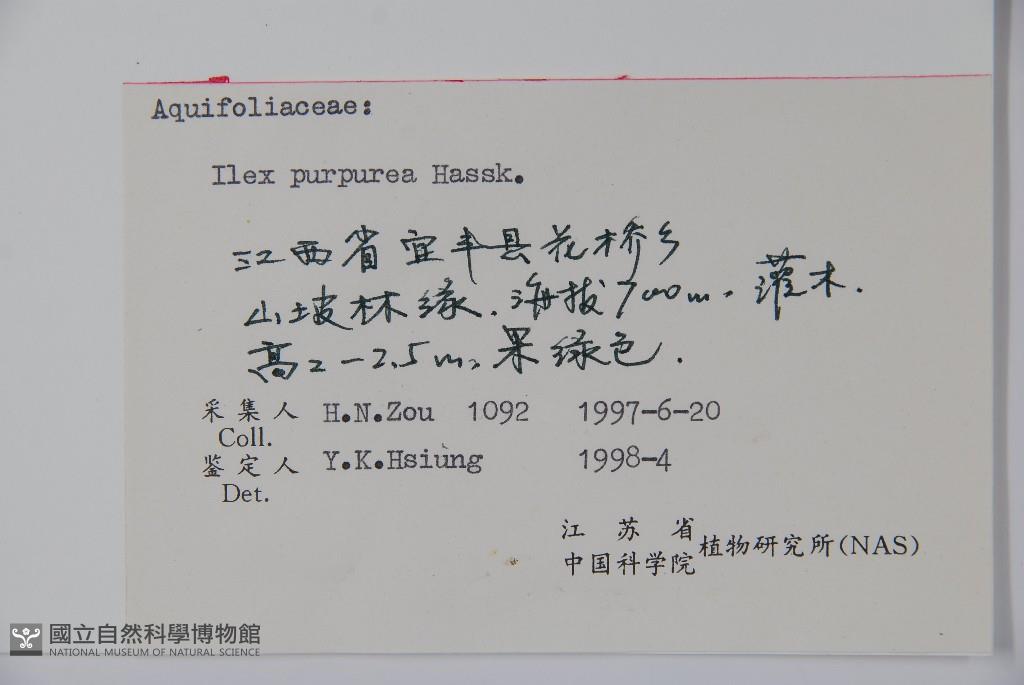 Aquifoliaceae:
Ilex purpurea Hassk.
江西省宜丰县花桥乡
山坡林缘.海拔700m,灌木.
高2-2.5m,果绿色.
采集人 H.N.Zou 1092 1997-6-20
Coll.
鉴定人 Y.K.Hsiung 1998-4
Det.
江苏省
中国科学院 植物研究所(NAS)
國立自然科學博物館
NATIONAL MUSEUM OF NATURAL SCIENCE